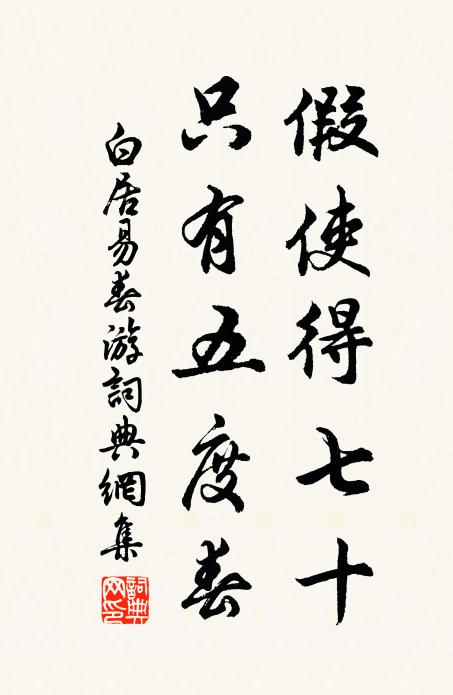 假使得七十
只有五度春
白居易春游詞典網集
詞典網印